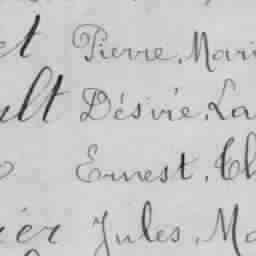 et Pierre, Mari
ult Désiré, La
Ernest, Ch
rier Jules, Ma